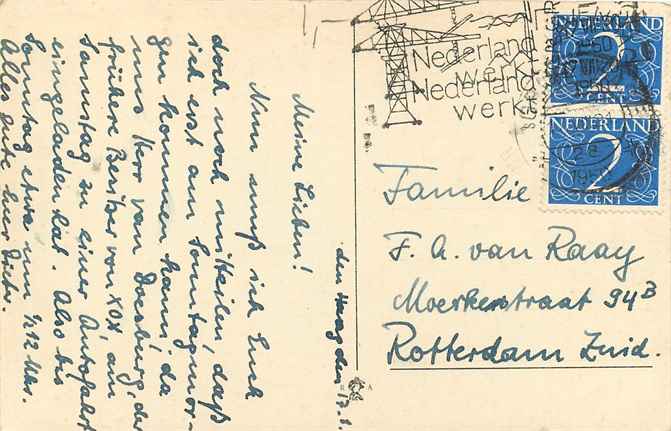 den Haag den 17.8.
Meine Lieben!
Nun muß ich Euch
doch noch mitteilen, daß
ich erst am Sonntagmor-
gen kommen kann, da
uns Herr van Doesburg, der
frühere Besitzer von XOX, am
Samstag zu einer Autofahrt
eingeladen hat. Also bis
Sonntag etwa um ½12 Uhr.
Alles Gute
Nederland
werkt
Nederland
werkt
NEDERLAND
2
CENT
NEDERLAND
2
CENT
Familie
F. A. van Raay
Moerkerstraat 94B
Rotterdam Zuid.